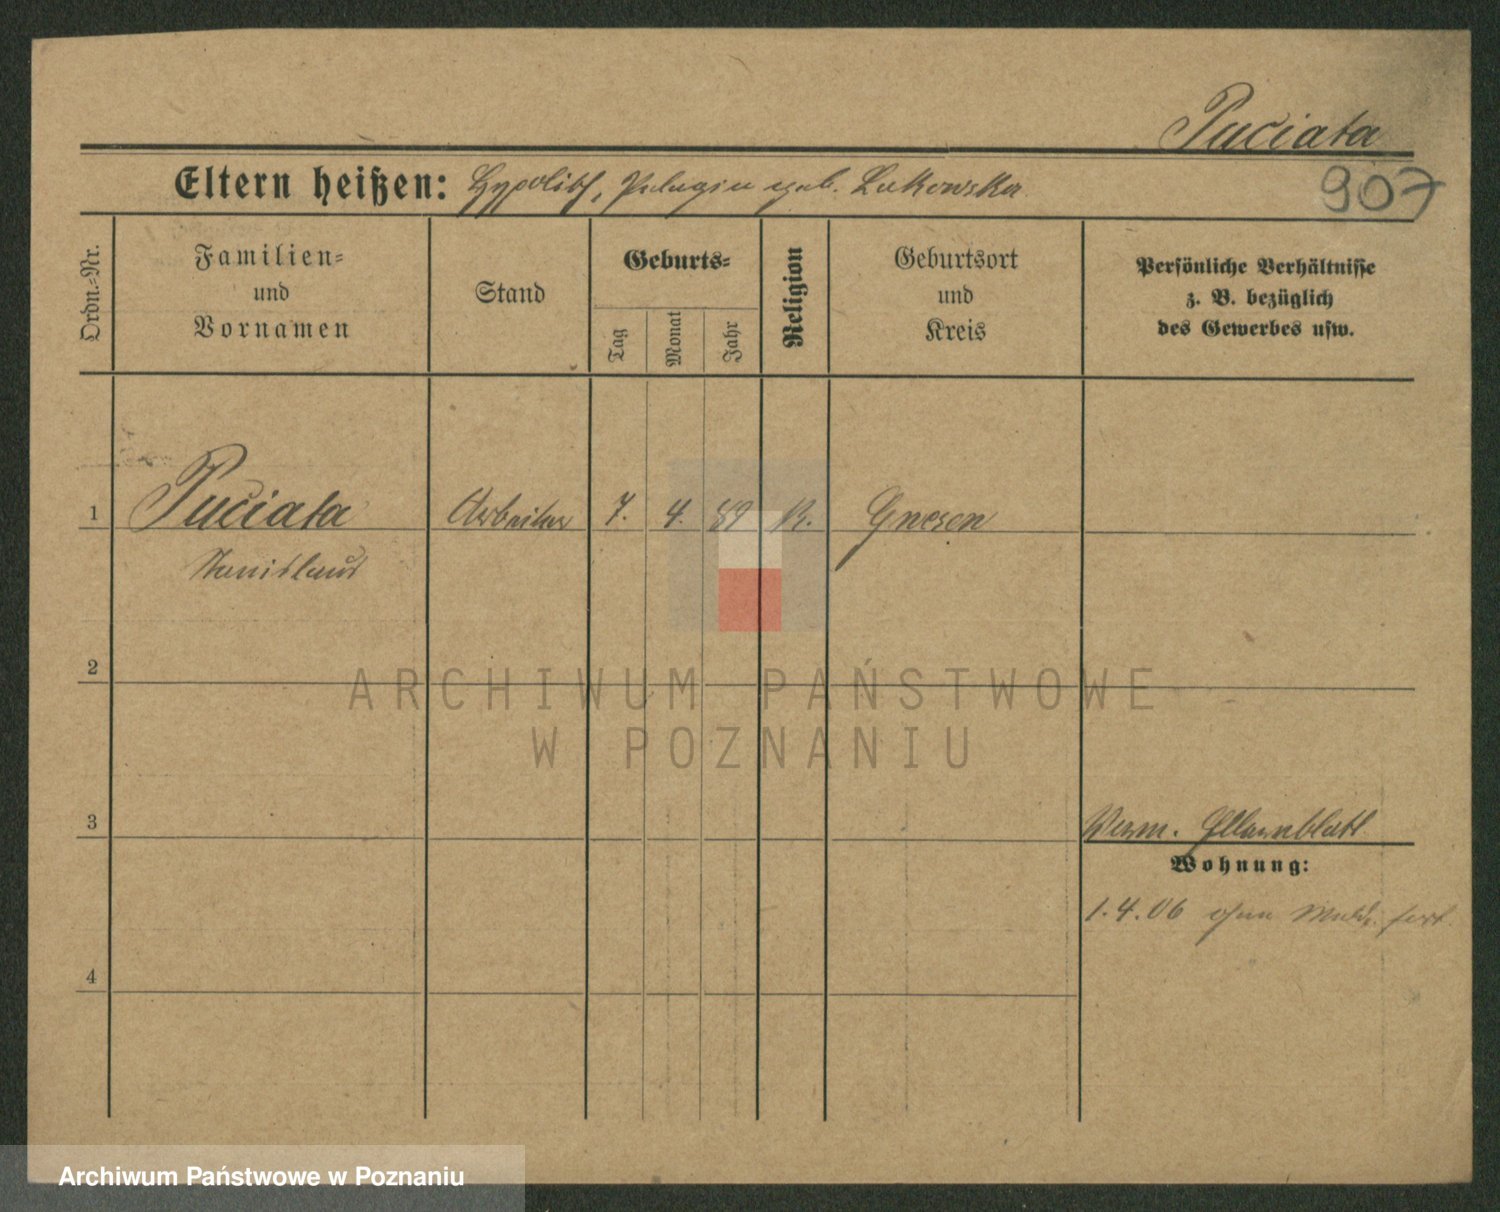 Puciata
Eltern heißen: Hypolith, Pelagia geb. Lukowska
907
Ordn.=Nr.
Familien=
und
Vornamen
Stand
Geburts=
Tag
Monat
Jahr
Religion
Geburtsort
und
Kreis
Persönliche Verhältnisse
z. B. bezüglich
des Gewerbes usw.
1 Puciata Arbeiter 7. 4. 89 K. Gnesen
Stanislaus
2
ARCHIWUM PAŃSTWOWE
W POZNANIU
3
Verm.
Wohnung:
1.4.06 ohne Meldg. fort.
4
Archiwum Państwowe w Poznaniu